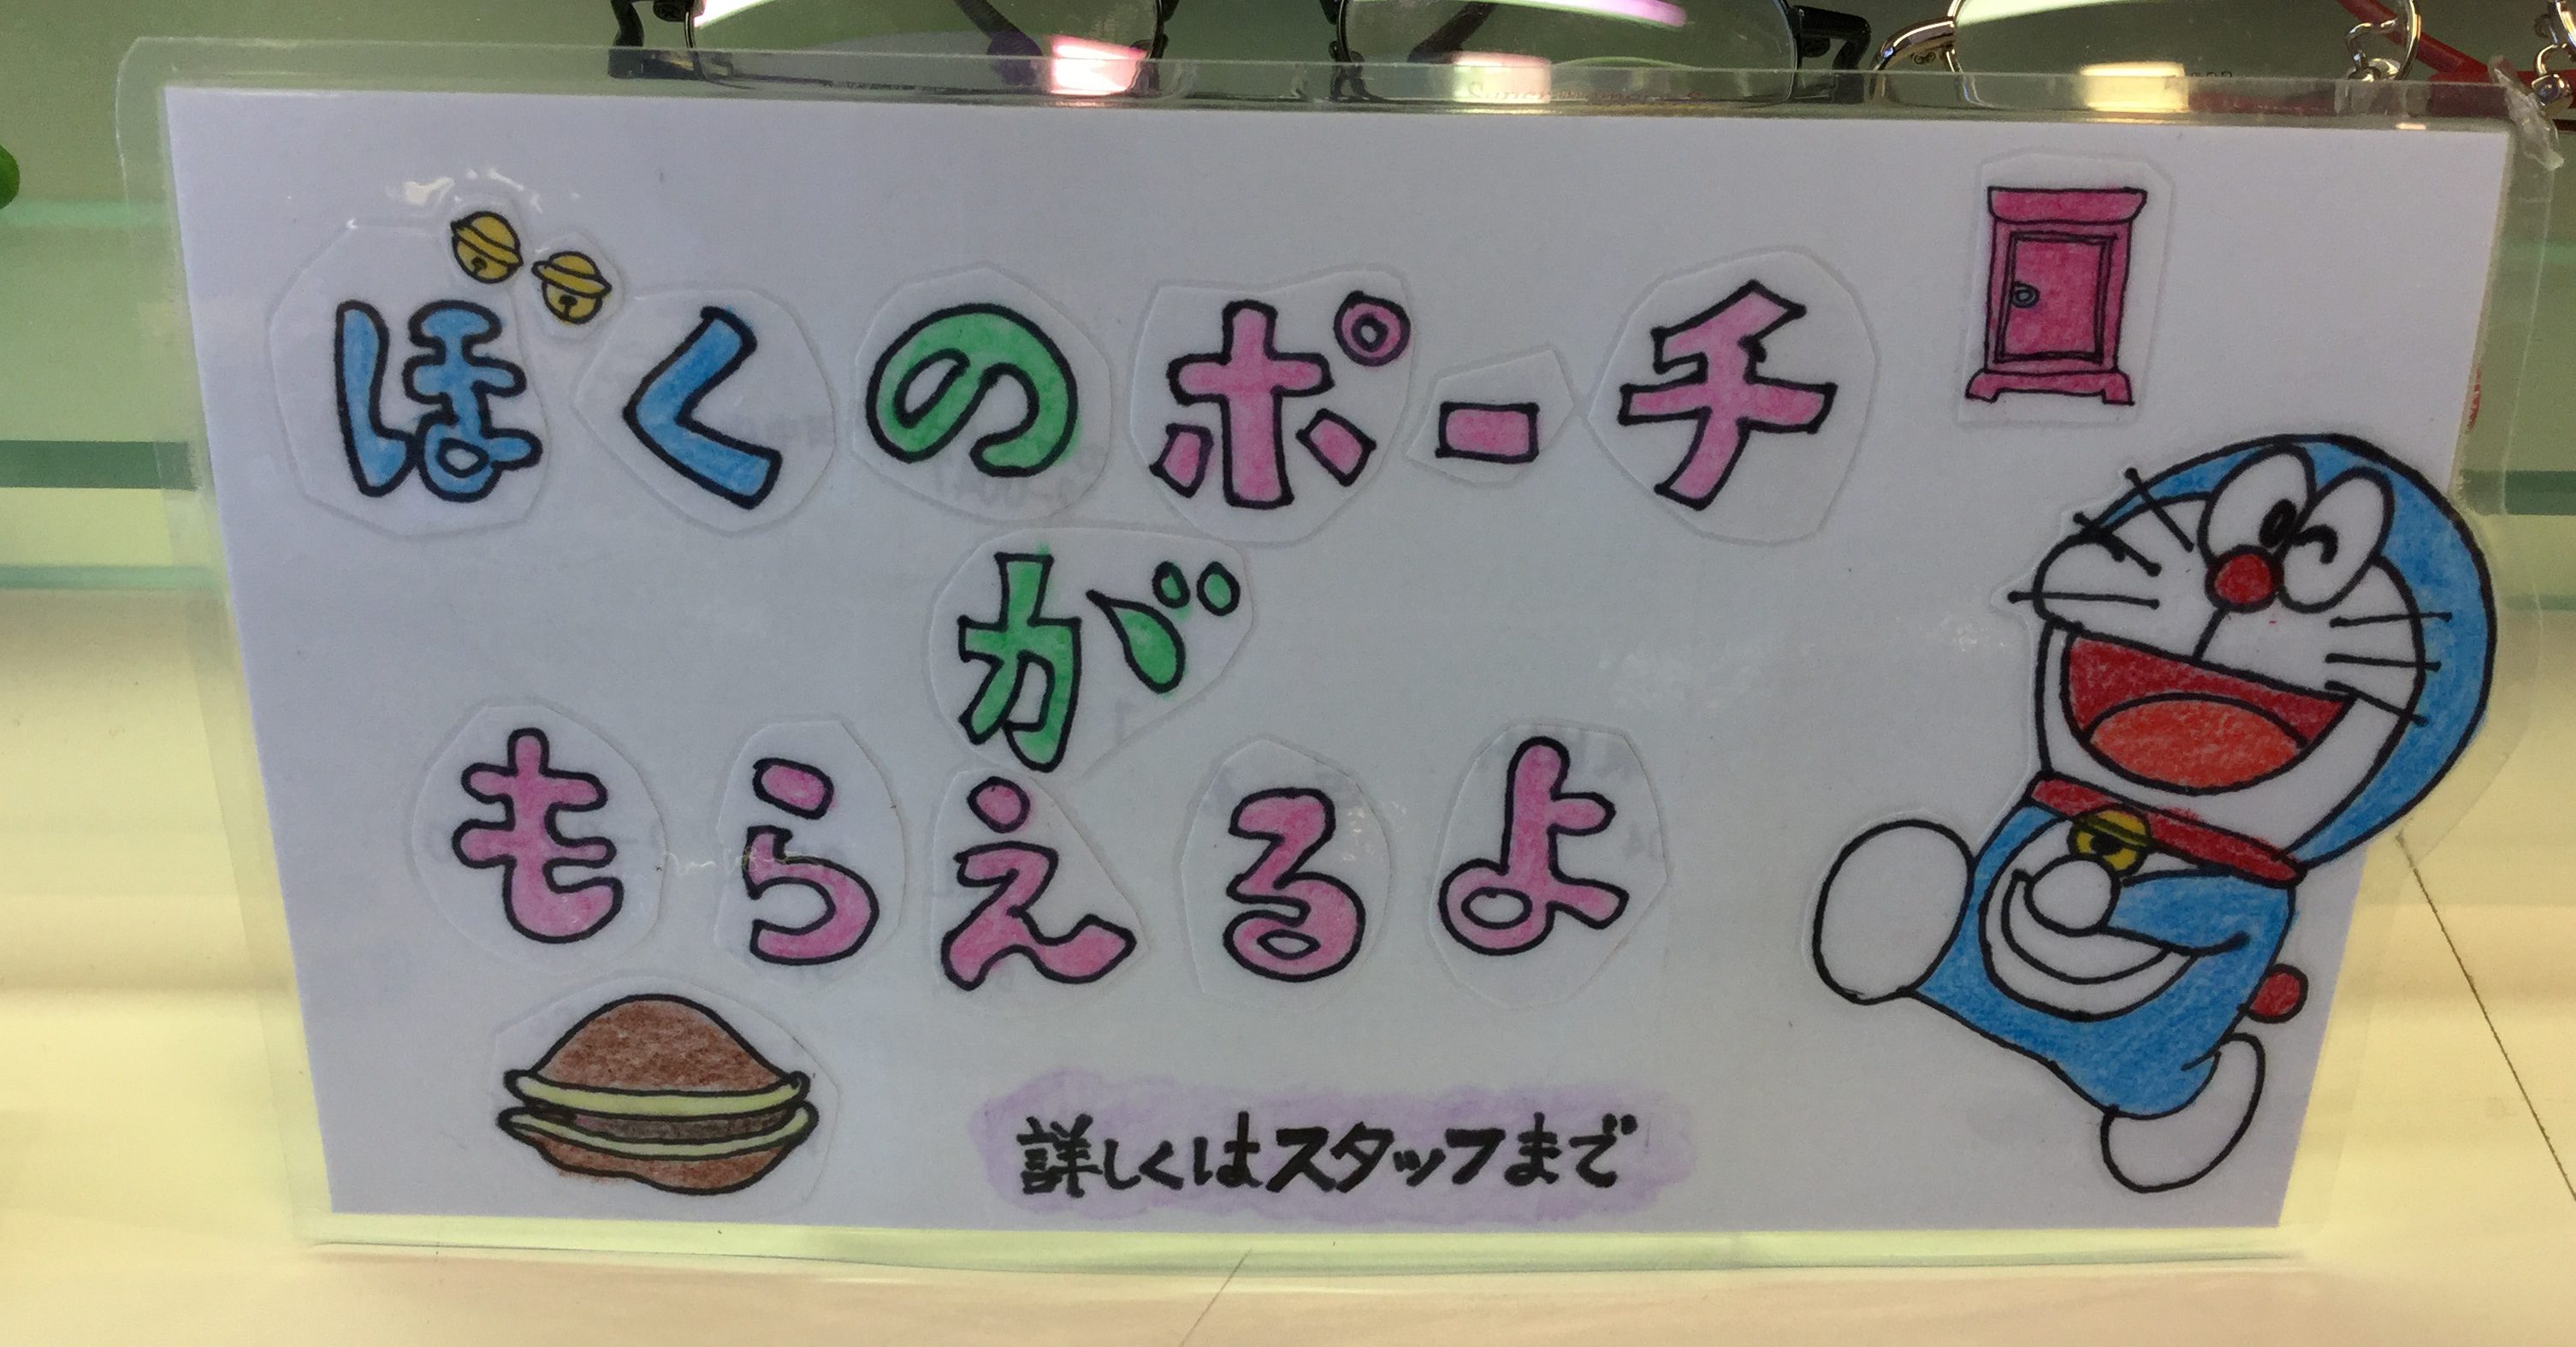 ぼくのポーチ
が
もらえるよ
詳しくはスタッフまで